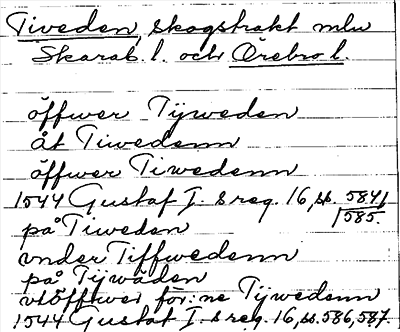 Tiveden, skogstrakt mln
Skarab. l. och Örebro l.
öffwer Tÿweden
åt Tiwedenn
öffwer Tiwedenn
1544 Gustaf I:s reg. 16, ss. 584,
585.
på Tiweden
vnder Tiffwedenn
på Tÿwäden
vtöffwer för:ne Tÿwedenn
1544 Gustaf I:s reg. 16, ss. 586, 587.